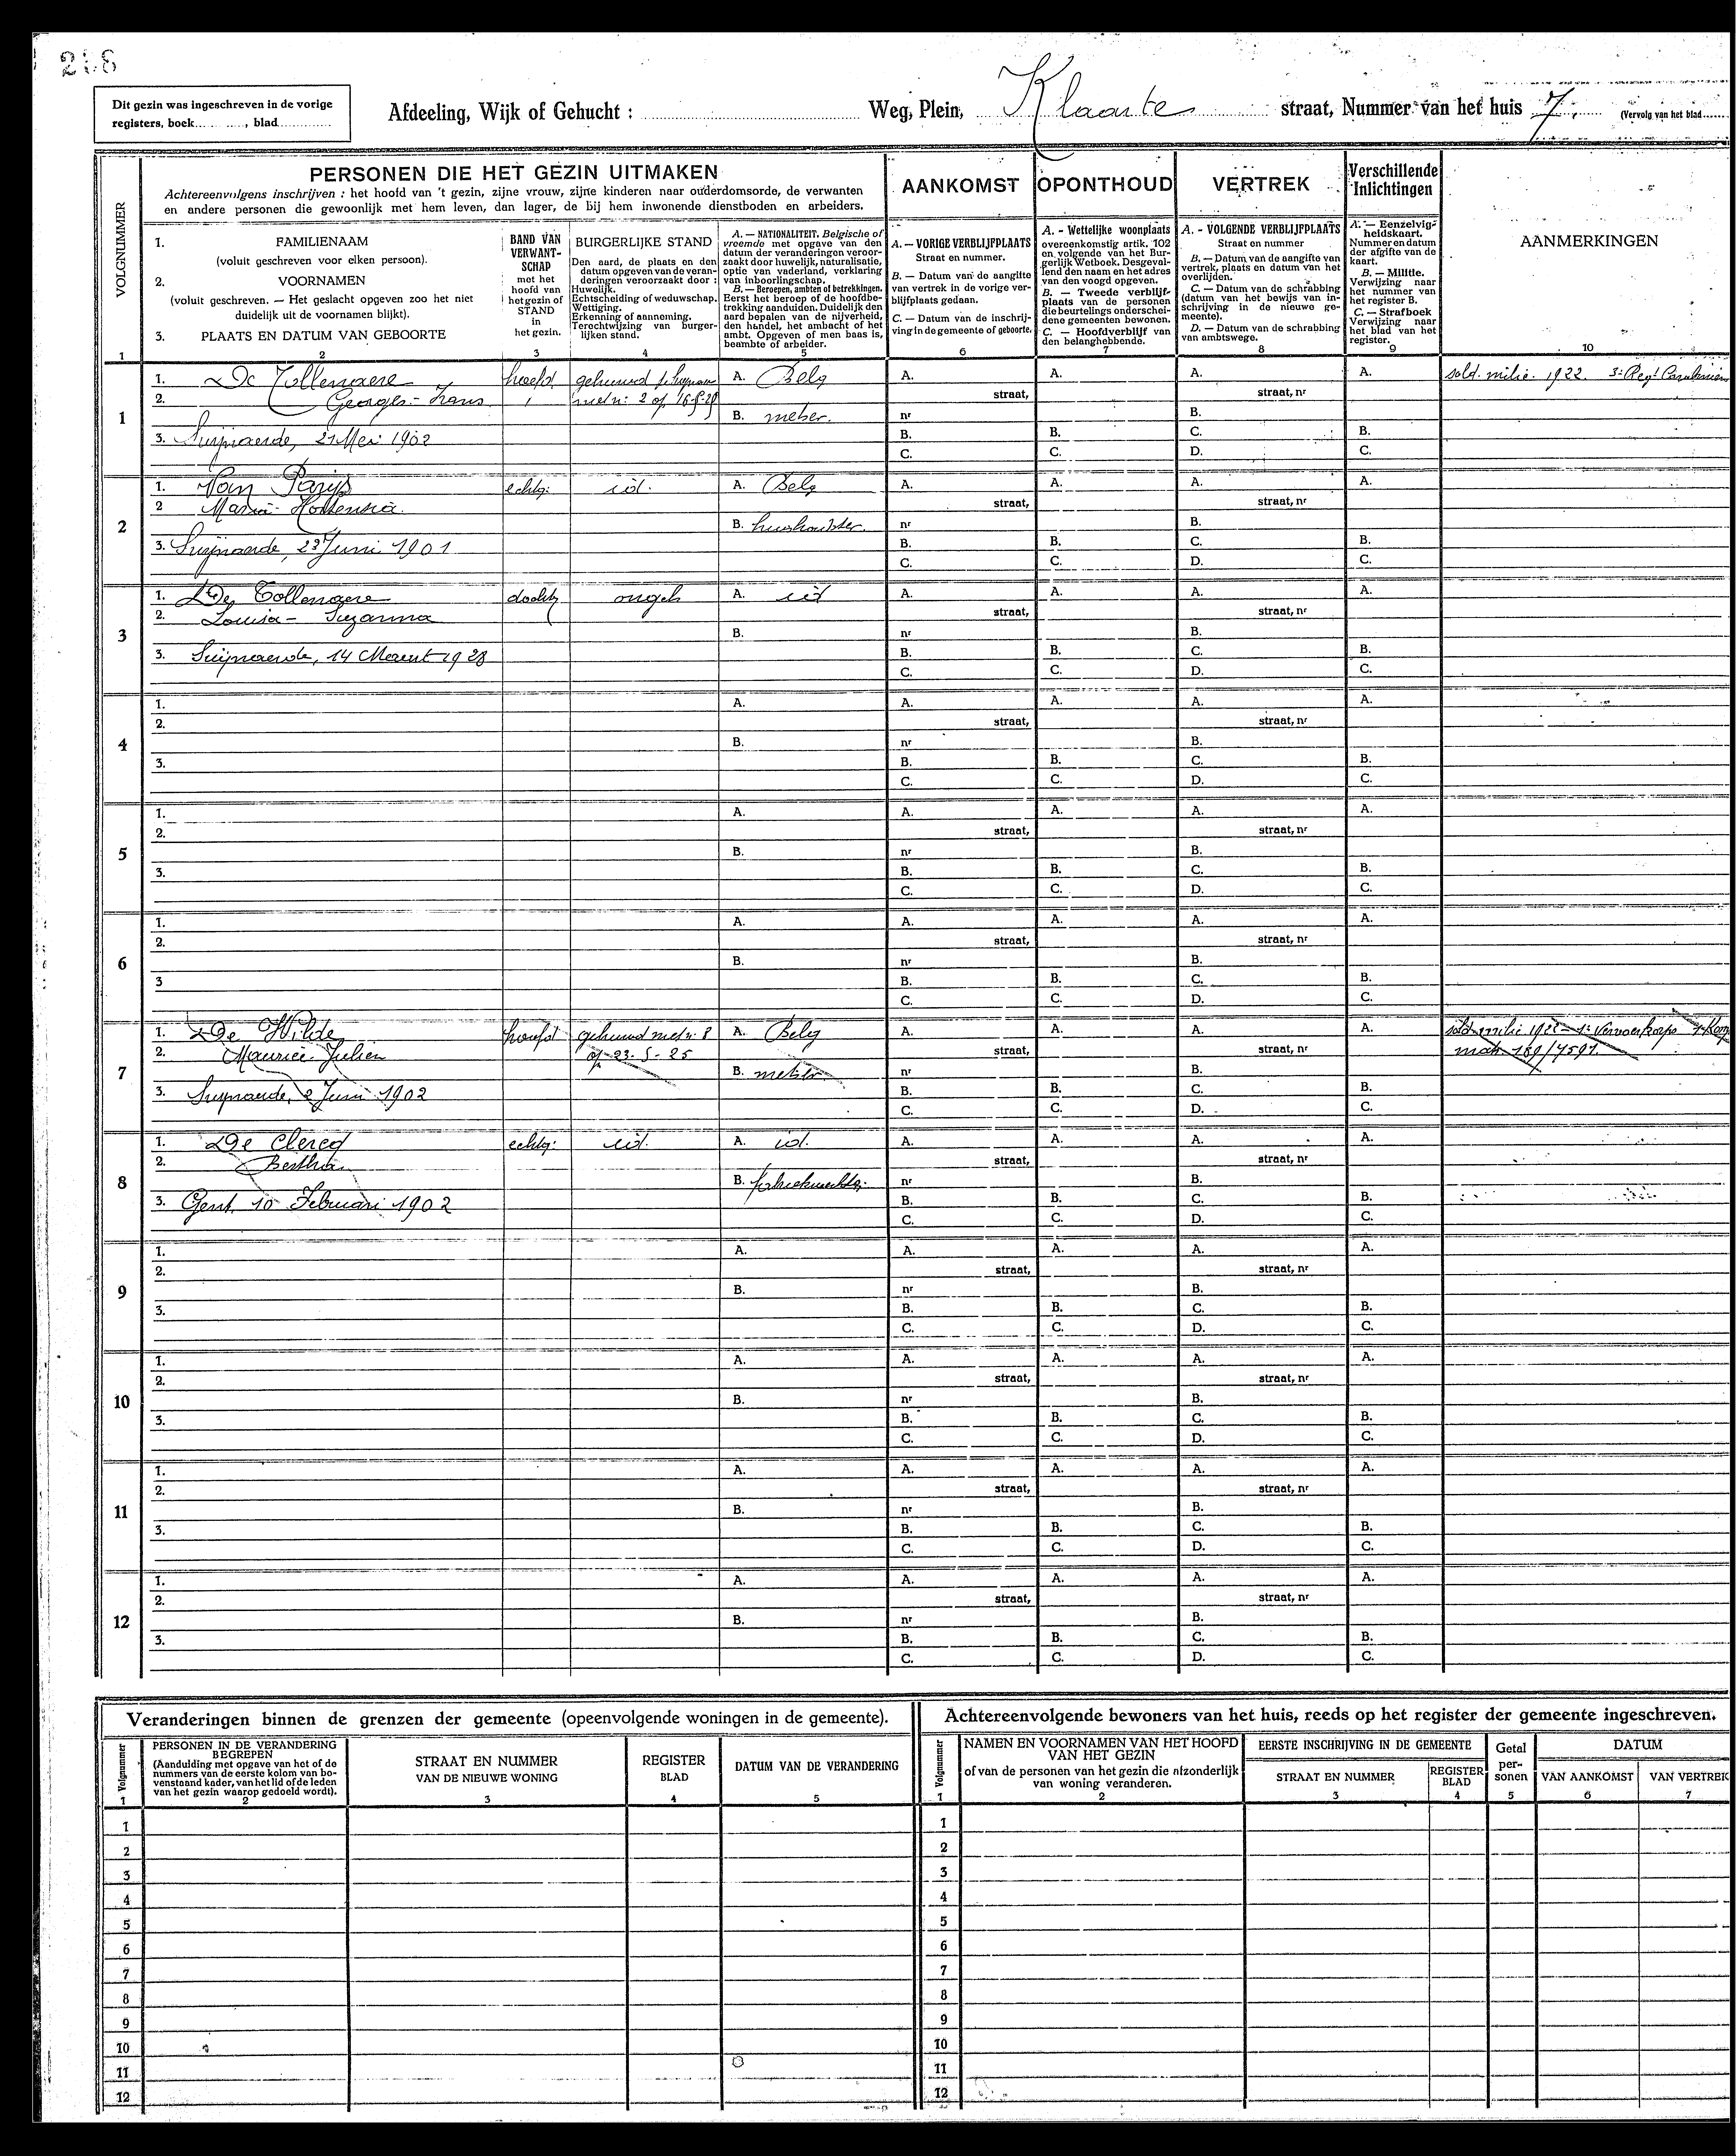 218
Dit gezin was ingeschreven in de vorige
registers, boek........., blad............
Afdeeling, Wijk of Gehucht : Weg, Plein, Klaarte straat, Nummer van het huis 7. (Vervolg van het blad
VOLGNUMMER
PERSONEN DIE HET GEZIN UITMAKEN
Achtereenvolgens inschrijven : het hoofd van 't gezin, zijne vrouw, zijne kinderen naar ouderdomsorde, de verwanten
en andere personen die gewoonlijk met hem leven, dan lager, de bij hem inwonende dienstboden en arbeiders.
AANKOMST
OPONTHOUD
VERTREK
Verschillende
Inlichtingen
1. FAMILIENAAM
(voluit geschreven voor elken persoon).
2. VOORNAMEN
(voluit geschreven. — Het geslacht opgeven zoo het niet
duidelijk uit de voornamen blijkt).
3. PLAATS EN DATUM VAN GEBOORTE
BAND VAN
VERWANT-
SCHAP
met het
hoofd van
het gezin of
STAND
in
het gezin.
BURGERLIJKE STAND
Den aard, de plaats en den
datum opgeven van de veran-
deringen veroorzaakt door :
Huwelijk.
Echtscheiding of weduwschap.
Wettiging.
Erkenning of aanneming.
Terechtwijzing van burger-
lijken stand.
A. — NATIONALITEIT. Belgische of
vreemde met opgave van den
datum der veranderingen veroor-
zaakt door huwelijk, naturalisatie,
optie van vaderland, verklaring
van inboorlingschap.
B. — Beroepen, ambten of betrekkingen.
Eerst het beroep of de hoofdbe-
trekking aanduiden. Duidelijk den
aard bepalen van de nijverheid,
den handel, het ambacht of het
ambt. Opgeven of men baas is,
beambte of arbeider.
A. — VORIGE VERBLIJFPLAATS
Straat en nummer.
B. — Datum van de aangifte
van vertrek in de vorige ver-
blijfplaats gedaan.
C. — Datum van de inschrij-
ving in de gemeente of geboorte.
A. - Wettelijke woonplaats
overeenkomstig artik. 102
en volgende van het Bur-
gerlijk Wetboek. Desgeval-
lend den naam en het adres
van den voogd opgeven.
B. — Tweede verblijf-
plaats van de personen
die beurtelings onderschei-
dene gemeenten bewonen.
C. — Hoofdverblijf van
den belanghebbende.
A. - VOLGENDE VERBLIJFPLAATS
Straat en nummer
B. — Datum van de aangifte van
vertrek, plaats en datum van het
overlijden.
C. — Datum van de schrabbing
(datum van het bewijs van in-
schrijving in de nieuwe ge-
meente).
D. — Datum van de schrabbing
van ambtswege.
A. — Eenzelvig-
heidskaart.
Nummer en datum
der afgifte van de
kaart.
B. — Militie.
Verwijzing naar
het nummer van
het register B.
C. — Strafboek
Verwijzing naar
het blad van het
register.
AANMERKINGEN
1 2 3 4 5 6 7 8 9 10
1
1. De Tollenaere hoofd gehuwd A. Belg A. A. A. A. sold. milie. 1922. 3e Regt
2. Georges - Frans met nr 2 op straat, straat, nr
B. metser. nr B.
3. Suijnaerde, 21 Mei 1902 B. B. C. B.
C. C. D. C.
2
1. Van Parijs echtg: id. A. Belg A. A. A. A.
2 Maria - Hortensia straat, straat, nr
B. huishoudster. nr B.
3. Suijnaerde, 23 Juni 1901 B. B. C. B.
C. C. D. C.
3
1. De Tollenaere dochter ongeh A. id A. A. A. A.
2. Louisa - Suzanna straat, straat, nr
B. nr B.
3. Suijnaerde, 14 Maart 1928 B. B. C. B.
C. C. D. C.
4
1. A. A. A. A. A.
2. straat, straat, nr
B. nr B.
3. B. B. C. B.
C. C. D. C.
5
1. A. A. A. A. A.
2. straat, straat, nr
B. nr B.
3. B. B. C. B.
C. C. D. C.
6
1. A. A. A. A. A.
2. straat, straat, nr
B. nr B.
3 B. B. C. B.
C. C. D. C.
7
1. De Wilde hoofd gehuwd met nr 8 A. Belg A. A. A. A. sold. milie 1922 - 1e Vervoerkorps
2. Maurice - Julien op 23-5-25 straat, straat, nr matr 189/7591.
B. metser. nr B.
3. Suijnaerde, 2 Juni 1902 B. B. C. B.
C. C. D. C.
8
1. De Clercq echtg: id. A. id. A. A. A. A.
2. Bertha straat, straat, nr
B. nr B.
3. Gent, 10 Februari 1902 B. B. C. B.
C. C. D. C.
9
1. A. A. A. A. A.
2. straat, straat, nr
B. nr B.
3. B. B. C. B.
C. C. D. C.
10
1. A. A. A. A. A.
2. straat, straat, nr
B. nr B.
3. B. B. C. B.
C. C. D. C.
11
1. A. A. A. A. A.
2. straat, straat, nr
B. nr B.
3. B. B. C. B.
C. C. D. C.
12
1. A. A. A. A. A.
2. straat, straat, nr
B. nr B.
3. B. B. C. B.
C. C. D. C.
Veranderingen binnen de grenzen der gemeente (opeenvolgende woningen in de gemeente).
Volgnummer
PERSONEN IN DE VERANDERING
BEGREPEN
(Aanduiding met opgave van het of de
nummers van de eerste kolom van bo-
venstaand kader, van het lid of de leden
van het gezin waarop gedoeld wordt).
STRAAT EN NUMMER
VAN DE NIEUWE WONING
REGISTER
BLAD
DATUM VAN DE VERANDERING
1 2 3 4 5
1
2
3
4
5
6
7
8
9
10
11
12
Achtereenvolgende bewoners van het huis, reeds op het register der gemeente ingeschreven.
Volgnummer
NAMEN EN VOORNAMEN VAN HET HOOFD
VAN HET GEZIN
of van de personen van het gezin die afzonderlijk
van woning veranderen.
EERSTE INSCHRIJVING IN DE GEMEENTE
STRAAT EN NUMMER
REGISTER
BLAD
Getal
per-
sonen
DATUM
VAN AANKOMST
VAN VERTREK
1 2 3 4 5 6 7
1
2
3
4
5
6
7
8
9
10
11
12